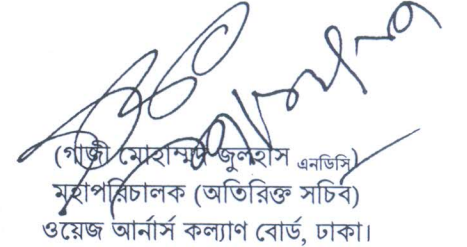 (গাজী মোহাম্মদ জুলহাস এনডিসি)
মহাপরিচালক (অতিরিক্ত সচিব)
ওয়েজ আর্নার্স কল্যাণ বোর্ড, ঢাকা।